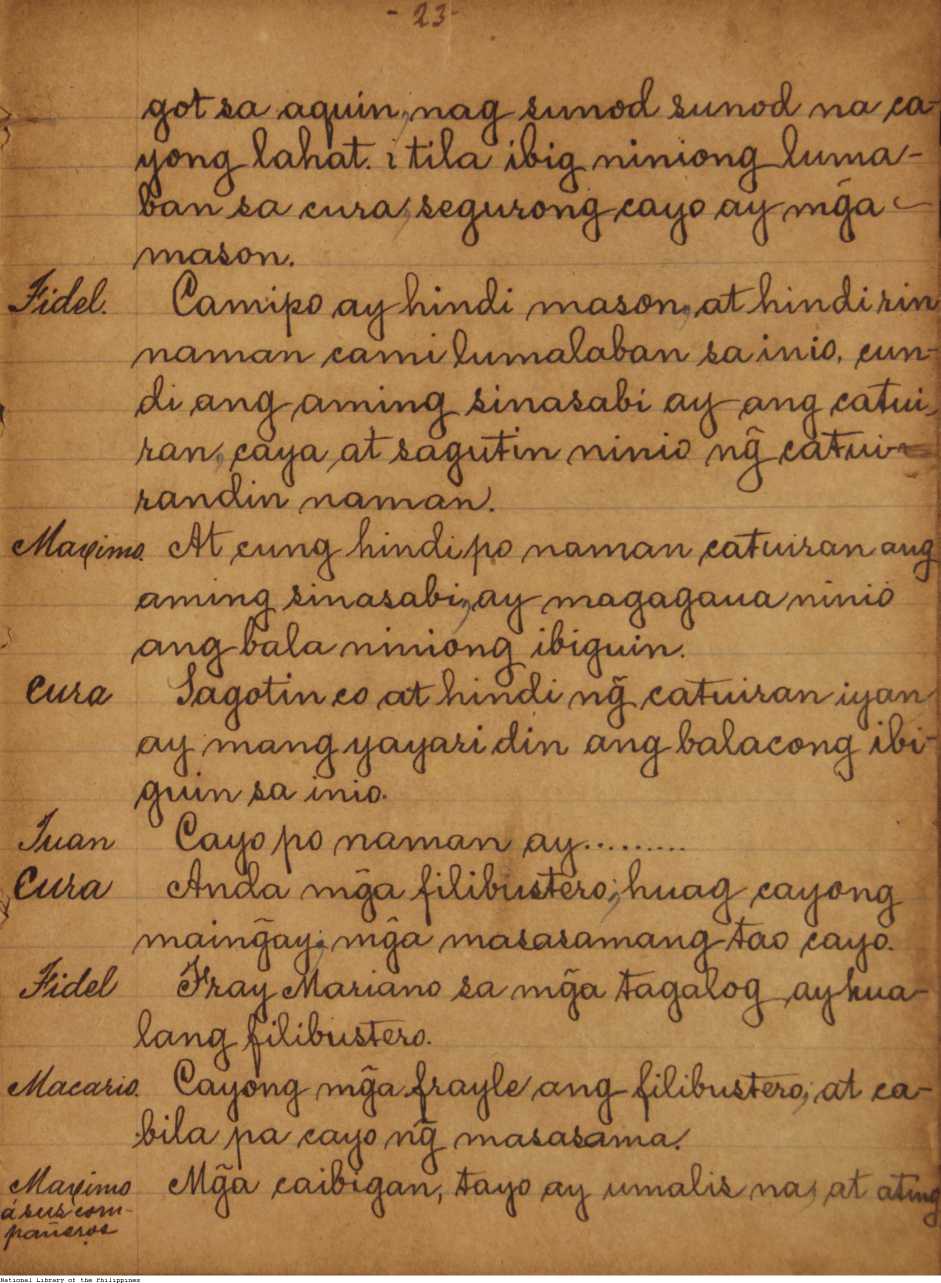 - 23 -
got sa aquin, nag sunod sunod na ca-
yong lahat. i tila ibig niniong luma-
ban sa cura, segurong cayo ay mg̃a
mason.
Fidel. Camipo ay hindi mason, at hindi rin
naman cami lumalaban sa inio, cun-
di ang aming sinasabi ay ang catui-
ran, caya at sagutin ninio ng̃ catui-
randin naman.
Maximo. At cung hindi po naman catuiran ang
aming sinasabi, ay magagaua ninio
ang bala niniong ibiguin.
Cura Sagotin co at hindi ng̃ catuiran iyan
ay mang yayari din ang balacong ibi-
guin sa inio.
Juan Cayo po naman ay.........
Cura Anda mg̃a filibustero, huag cayong
maing̃ay, mg̃a masasamang tao cayo.
Fidel Fray Mariano sa mg̃a tagalog ay hua-
lang filibustero.
Macario. Cayong mg̃a frayle ang filibustero, at ca-
bila pa cayo ng̃ masasama.
Maximo Mg̃a caibigan, tayo ay umalis na, at ating
á sus com-
pañeros
National Library of the Philippines